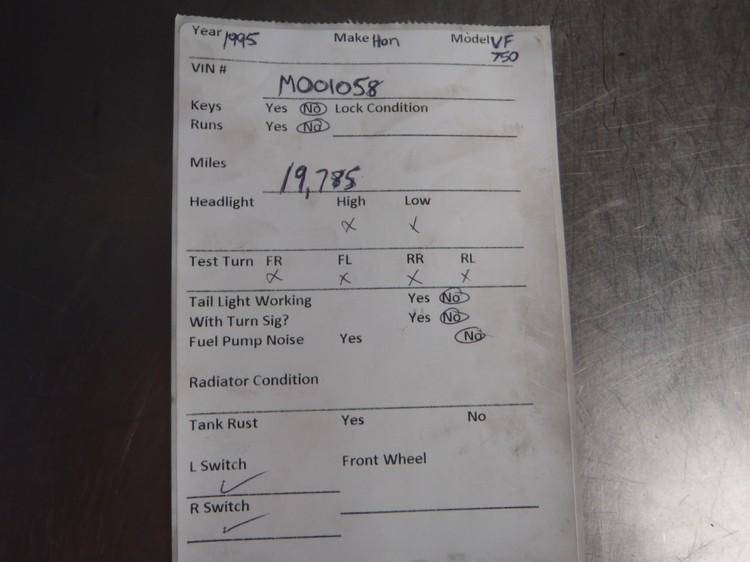 Year 1995 Make Hon Model VF
750
VIN # M001058
Keys Yes No Lock Condition
Runs Yes No
Miles 19,785
Headlight High Low
x x
Test Turn FR FL RR RL
x x x x
Tail Light Working Yes No
With Turn Sig? Yes No
Fuel Pump Noise Yes No
Radiator Condition
Tank Rust Yes No
L Switch Front Wheel
✓
R Switch
✓